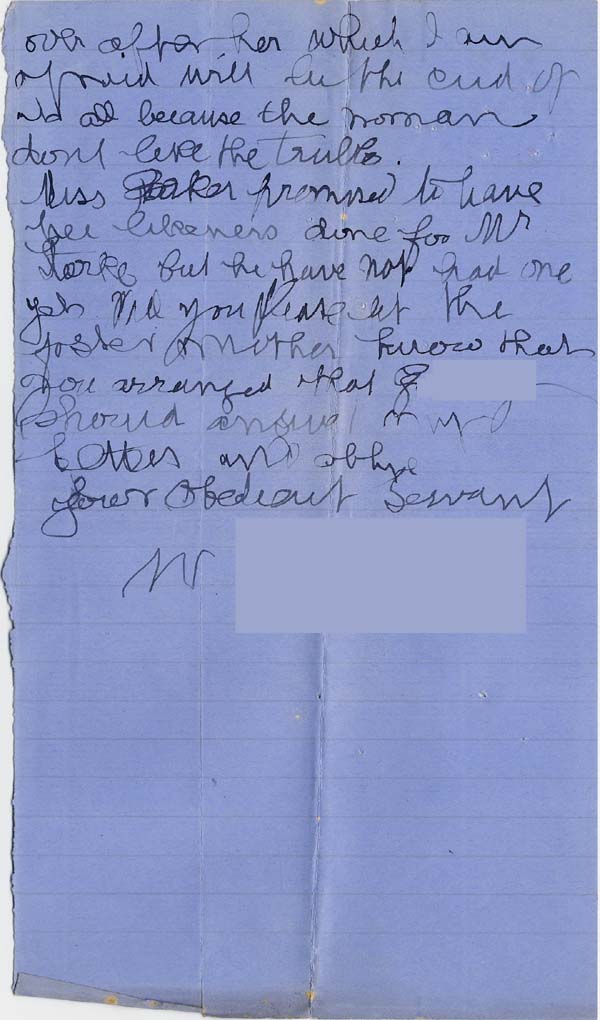 over after her which I am
afraid will be the end of
it all because the woman
dont like the truth.
Miss Baker promised to have
her likeness done for Mr
but he have not had one
yet Will you please let the
foster mother know that
you arranged that
should answer my
letters and oblige
your Obedient Servant
W